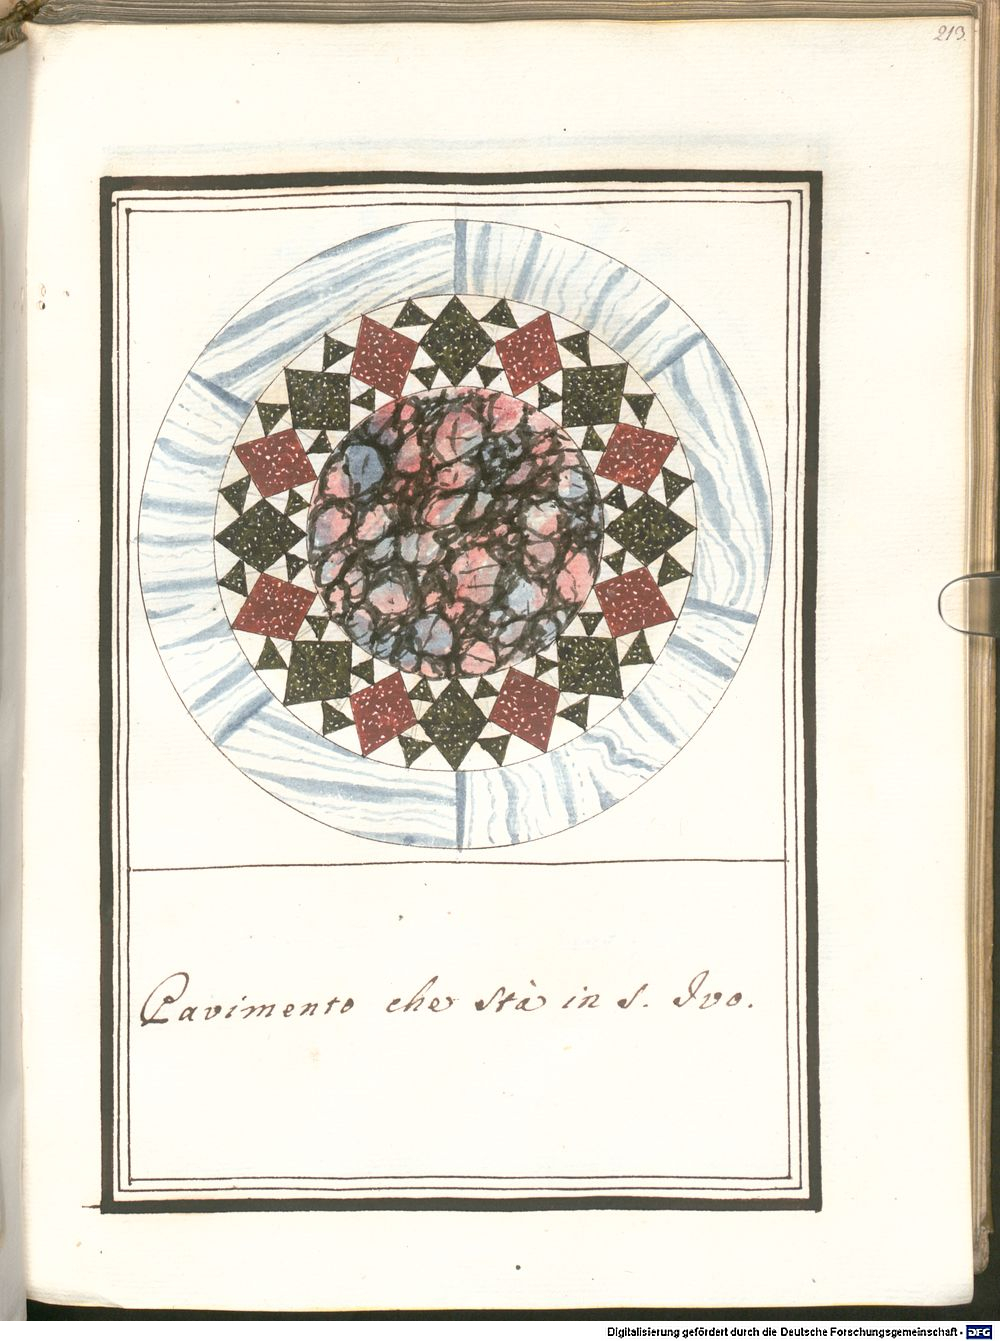 213.
Pavimento che stà in S. Ivo.
Digitalisierung gefördert durch die Deutsche Forschungsgemeinschaft - DFG